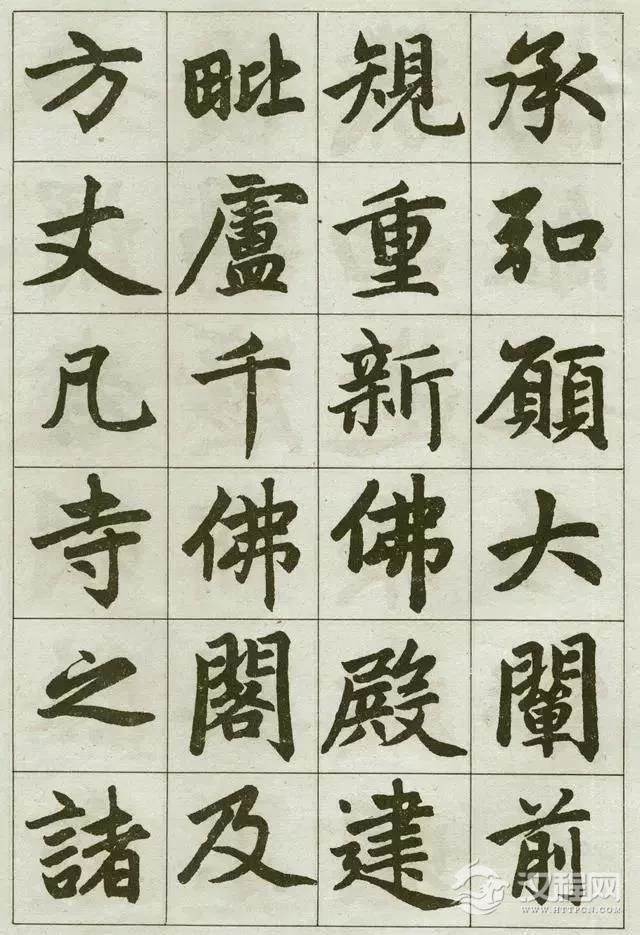 承弘願大闡前
規重新佛殿建
毗盧千佛閣及
方丈凡寺之諸
汉程网
WWW.HTTPCN.COM